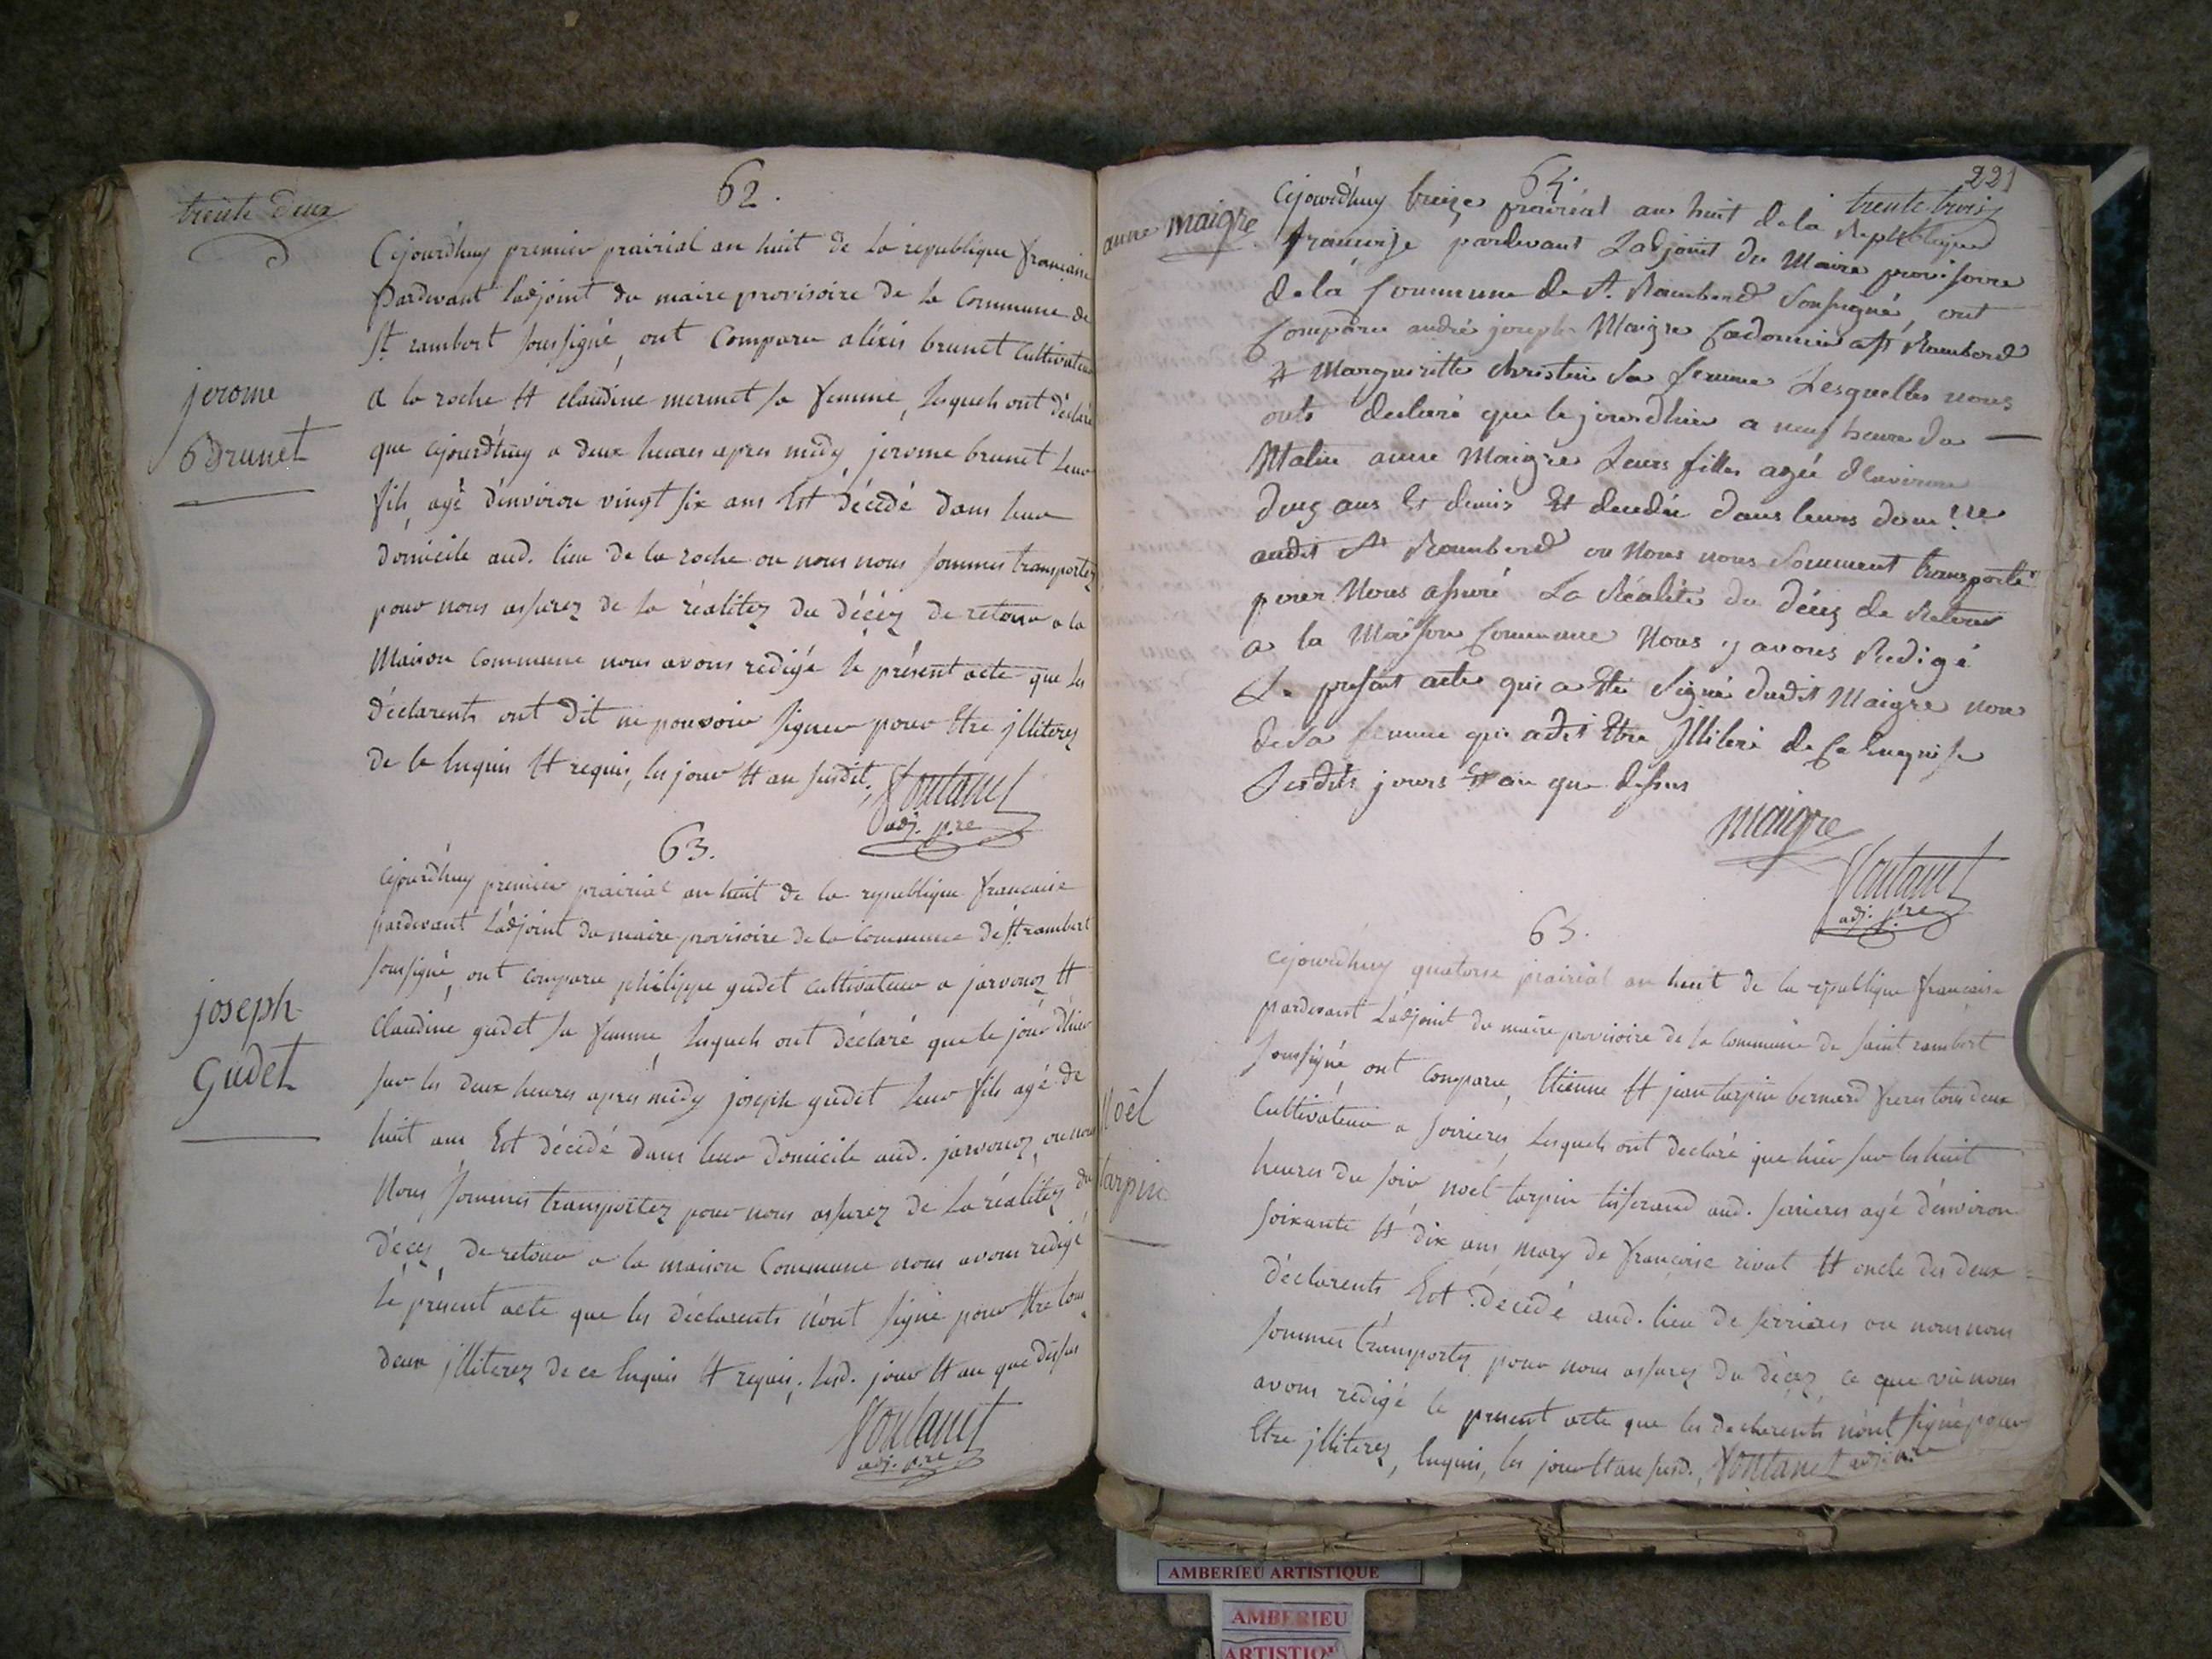 trente deux
62.
Cejourdhuy premier prairial an huit de la republique francaise
pardevant l'adjoint du maire provisoire de la Commune de
St rambert soussigné, ont Comparu aléxis brunet Cultivateur
a la roche et claudine mermet sa femme, lesquels ont déclaré
que cejourdhuy a deux heures apres midy, jérome brunet leur
fils, agé d'environ vingt six ans Est décédé dans leur
domicile aud. lieu de la roche ou nous nous sommes transportez
pour nous assurez de la réalitez du décéz de retour a la
Maison commune nous avons redigée le présent acte que les
déclarents ont dit ne pouvoir signer pour Etre jlliterez
de le enquis Et requis, les jour et an susdit.
jerome
Brunet
fontanet
adj. p.re
63.
cejourdhuy premier prairial an huit de la republique francaise
pardevant L'adjoint du maire provisoire de la Commune de St rambert
soussigné, ont comparu philippe gudet cultivateur a jarvonoz Et
Claudine gudet sa femme, lesquels ont déclaré que le jour d'hier
sur les deux heures aprés midy joseph gudet leur fils agé de
huit ans Est décédé dans leur domicile aud. jarvonoz, ou nous
Nous sommes transportez pour nous assurez de La réalitez du
décez, de retour a la maison Commune nous avons redigé
le présent acte que les déclarents n'ont signé pour Etre tous
deux jlliterez de ce enquis Et requis. lesd. jour et an que dessus
joseph
Gudet
fontanet
adj. p.re
221
trente trois
64.
anne Maigre
Cejourdhuy treize prairial an huit de la Republique
francaise pardevant Ladjoint du Maire provisoire
de la Commune de St. Ramberd Sousigné, ont
Comparu andré joseph Maigre Cadonnier a St Ramberd
et Margueritte christin sa femme Lesquelles nous
onts declaré que le jourdhier a neuf heure du
Matin anne Maigre Leurs filles agée d'environ
deuz ans et demis Est decedée dans leurs dom.lle
audit St Ramberd ou Nous nous somment transporté
pour Nous assuré La Réalité du décéz de Retour
a la Maison Commune Nous y avons Redigé
Le present acte qui a Eté Signé dudit Maigre non
de sa femme qui a dit Etre Jlliteré de ce enquise
Lesdits jours Et an que dessus
maigre
fontanet
adj. p.re
65.
cejourdhuy quatorse prairial an huit de la republique francaise
pardevant L'adjoint du maire provisoire de la Commune de saint rambert
soussigné ont comparu, Etienne Et jean tarpin bernard freres tous deux
Cultivateur a serrieres, Lesquels ont declaré que hier sur les huit
heures du soir noel tarpin tisserand aud. serrieres agé d'environ
soixante Et dix ans, mary de francoise rivat Et oncle des deux
déclarents Est decedé aud. lieu de serrieres ou nous nous
sommes transportez pour nous assurez du décez, ce que vu nous
avons rédigé le present acte que les declarents n'ont signé pour
Etre jlliterez, enquis, les jour et an susd. fontanet adj. p.re
Noël
tarpin
AMBERIEU ARTISTIQUE
AMBERIEU
ARTISTIQUE